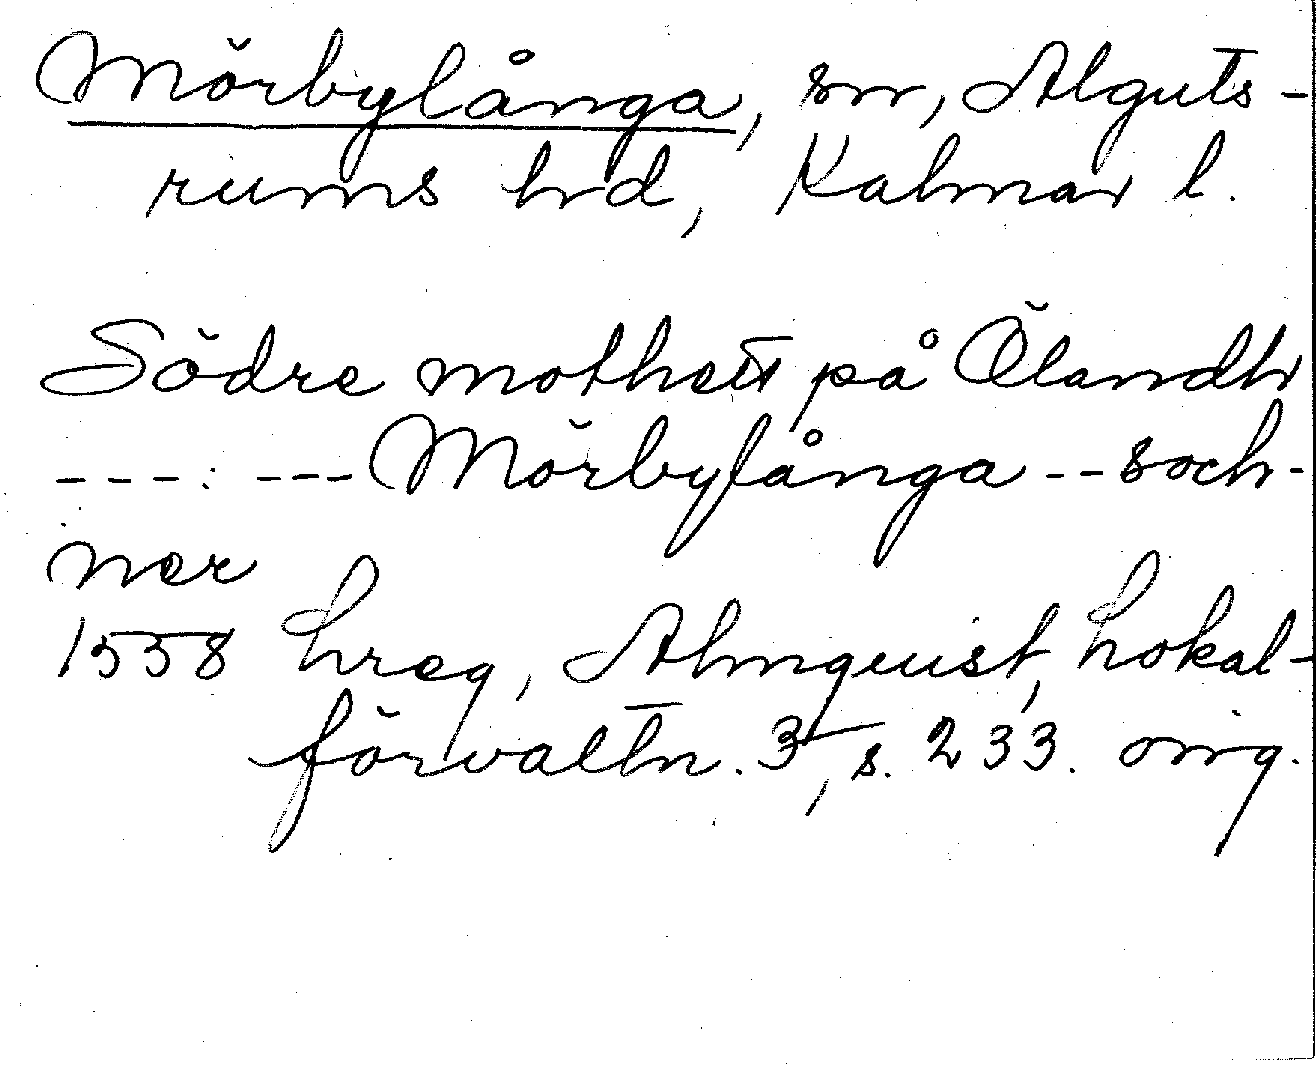 Mörbylånga, sn, Alguts-
rums hrd, Kalmar l.
Södre mothett på Ölandh
---:---Mörbylånga--soch-
ner
1558 hreg, Almquist, Lokal-
förvaltn. 3, s. 233. orig.